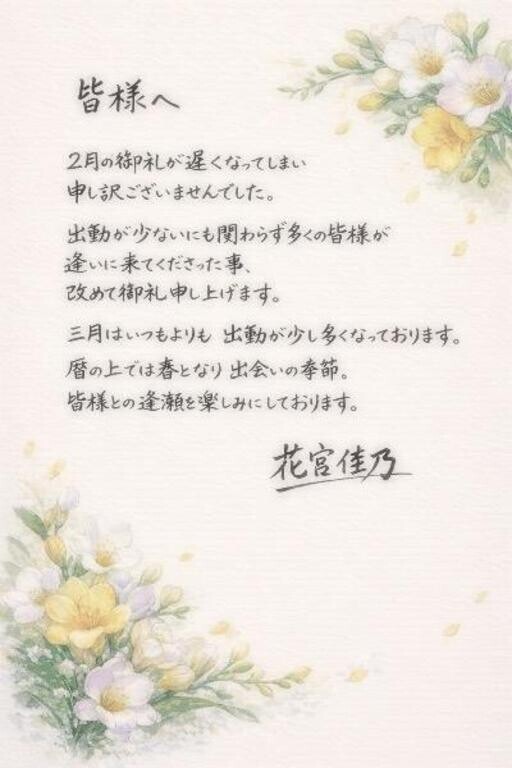 皆様へ
2月の御礼が遅くなってしまい
申し訳ございませんでした。
出勤が少ないにも関わらず多くの皆様が
逢いに来てくださった事、
改めて御礼申し上げます。
三月はいつもよりも 出勤が少し多くなっております。
暦の上では春となり 出会いの季節。
皆様との逢瀬を楽しみにしております。
花宮佳乃